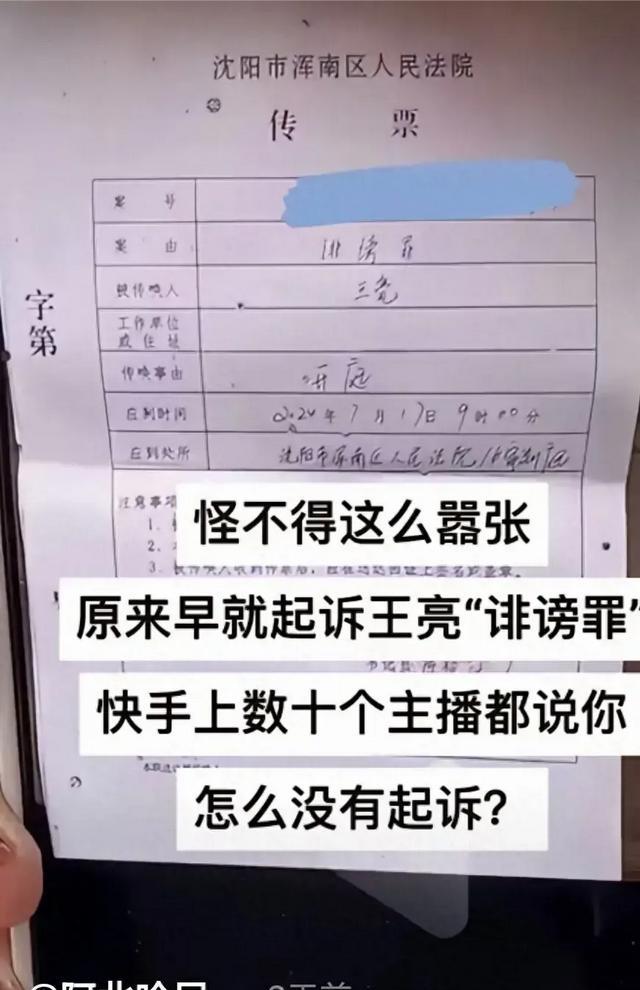 沈阳市浑南区人民法院
传 票
字第
案 号
案 由 诽谤罪
被传唤人 王亮
工作单位
或住址
传唤事由 开庭
应到时间 2024年7月17日9时00分
应到处所 沈阳市浑南区人民法院
注意事项
1.
2.
3. 被传唤人收到传票后,应在送达回证上签名或盖章。
怪不得这么嚣张
原来早就起诉王亮“诽谤罪”
快手上数十个主播都说你
怎么没有起诉?
书记员